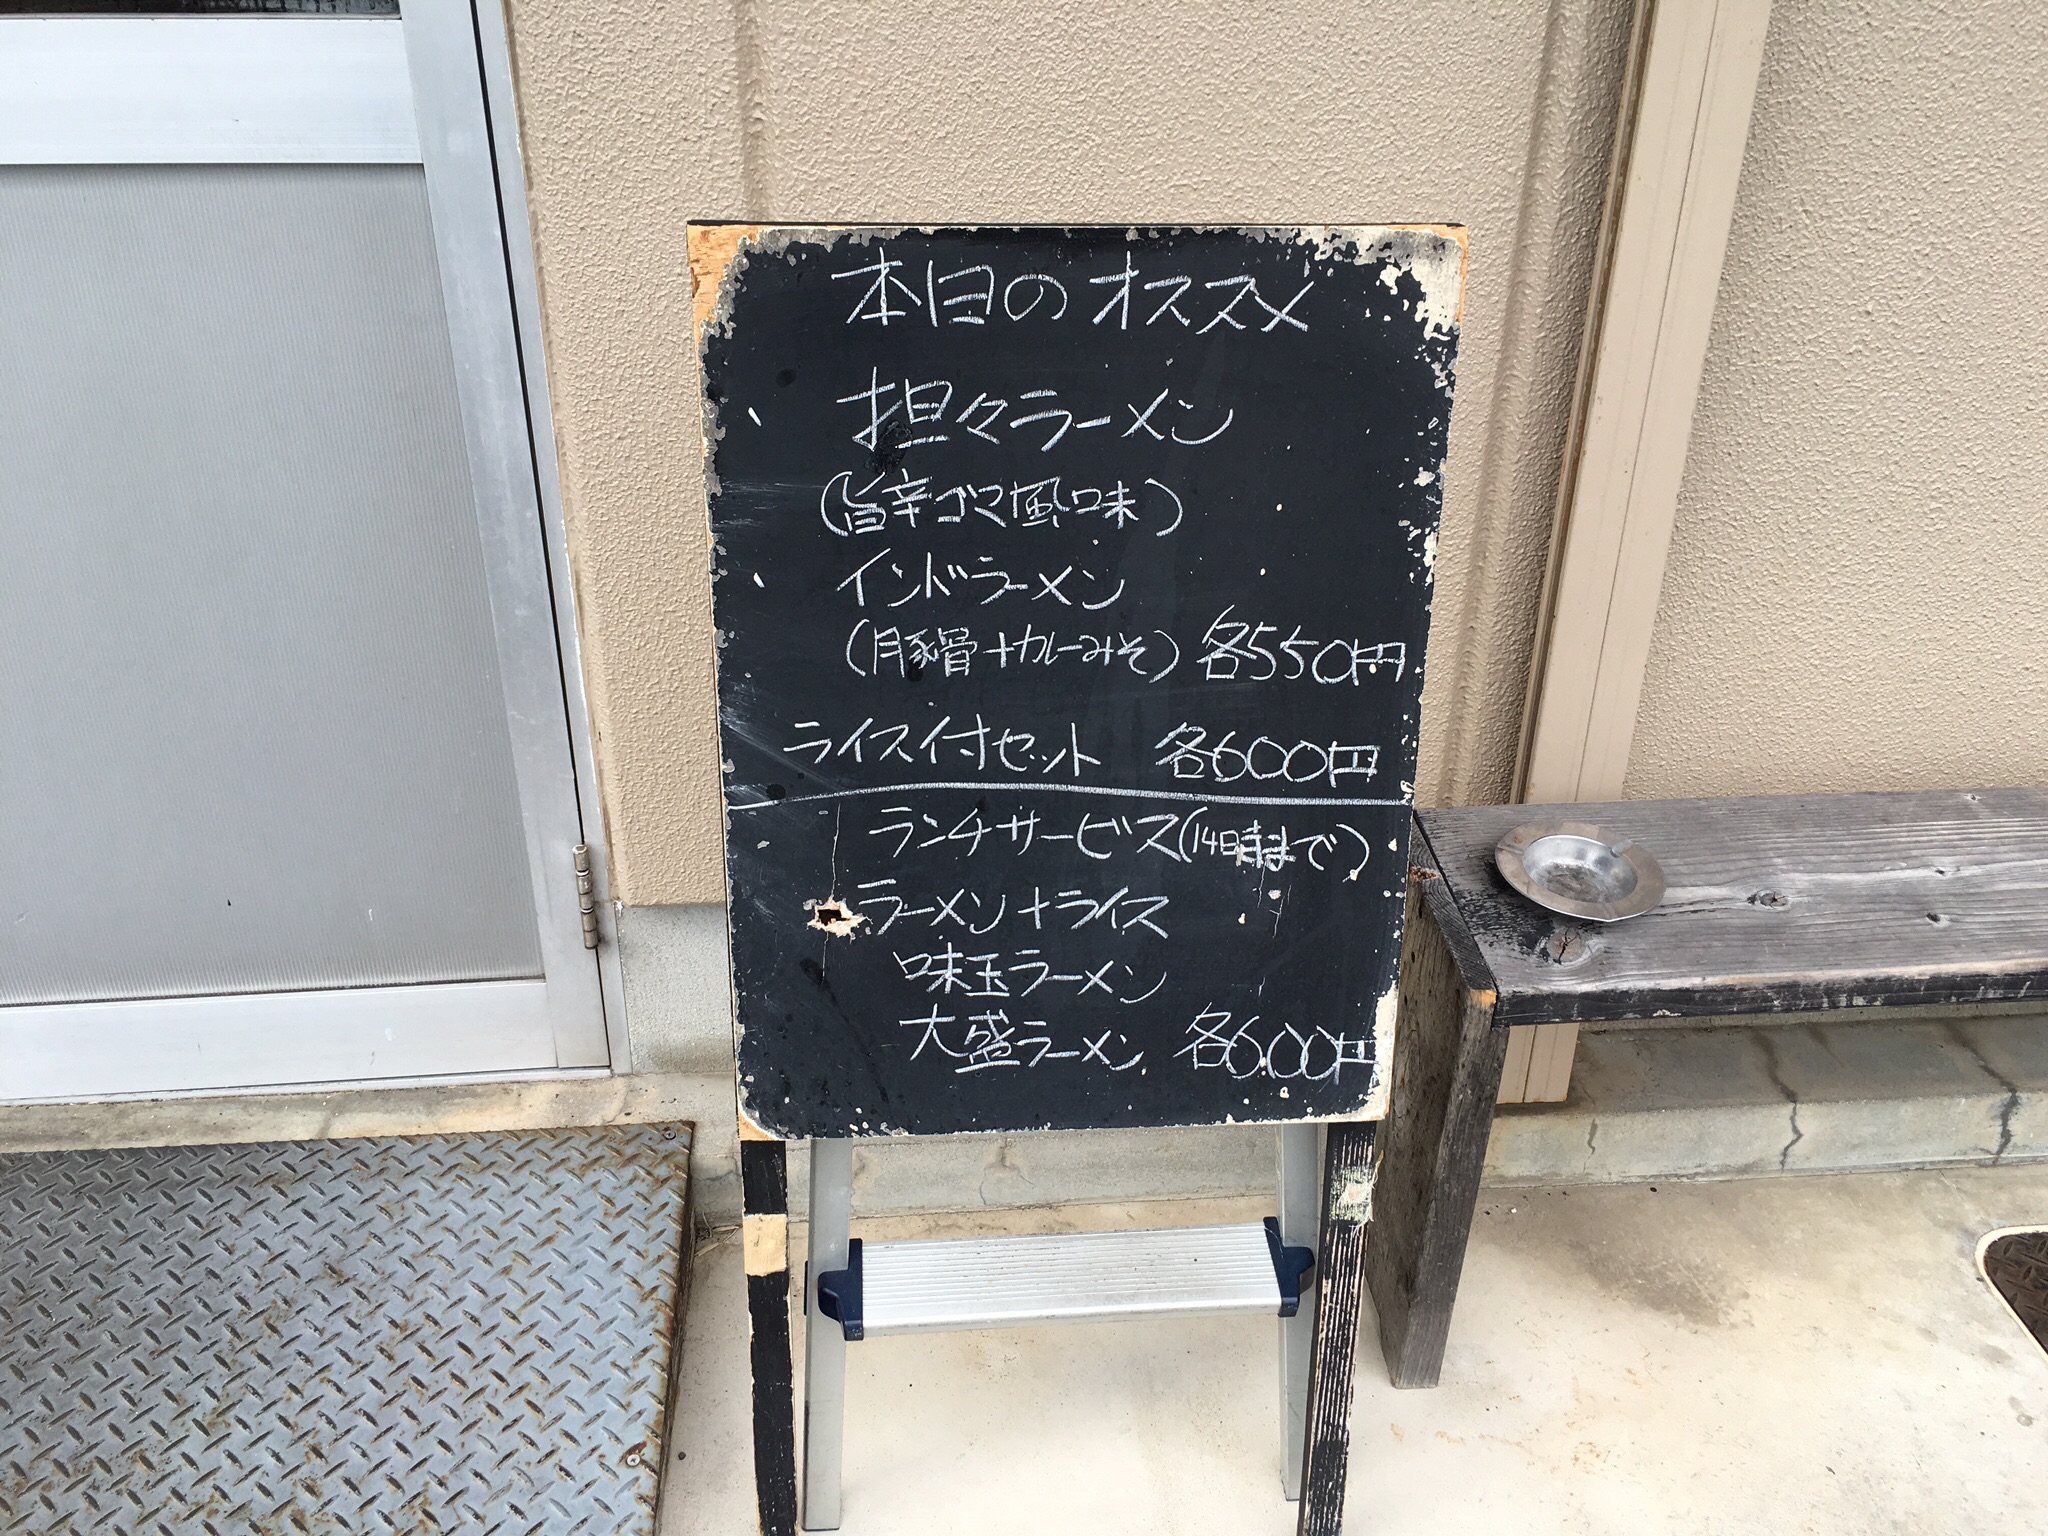 本日のオススメ
担々ラーメン
(旨辛ゴマ風味)
インドラーメン
(豚骨+カレーみそ) 各550円
ライス付セット 各600円
ランチサービス(14時まで)
ラーメン+ライス
味玉ラーメン
大盛ラーメン 各600円